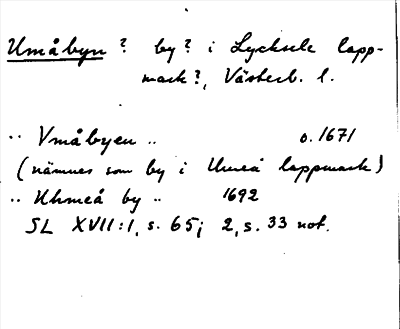 Umåbyn? by? i Lycksele lapp-
mark?, Västerb. l.
.. Vmåbyen .. o. 1671
(nämnes som by i Umeå lappmark)
.. Uhmeå by .. 1692
SL XVII:1, s. 65; 2, s. 33 not.